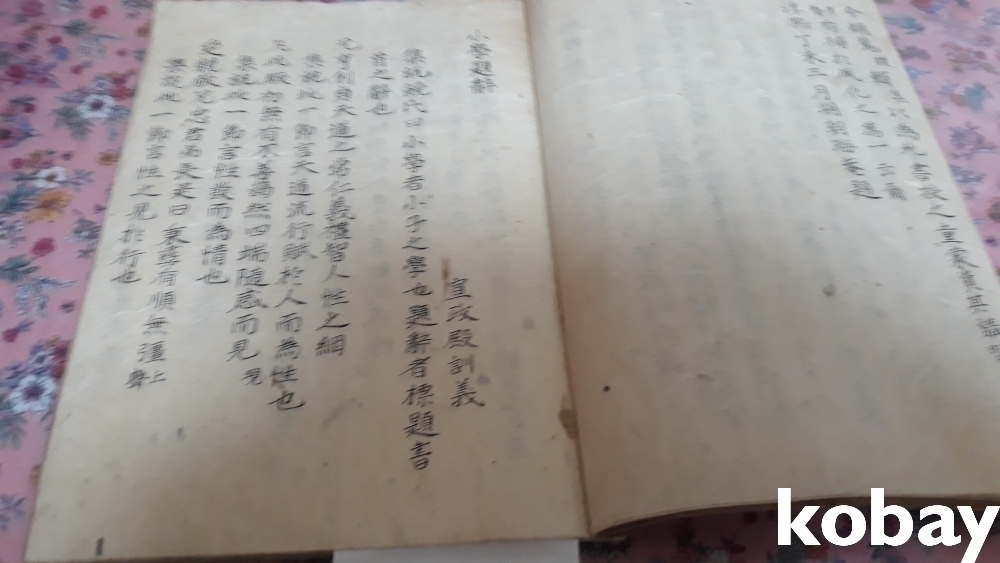 以為此書授之童蒙資其講
有補於風化之萬一云爾
淳熙丁未三月朔朝晦菴題
小學題辭
宣政殿訓義
集說饒氏曰小學者小子之學也題辭者標題書
首之辭也
元亨利貞天道之常仁義禮智人性之綱
集說此一節言天道流行賦於人而為性也
凡此厥初無有不善藹然四端隨感而見現
集說此一節言性發而為情也
愛親敬兄忠君弟長是曰秉彝有順無彊上聲
集說此一節言性之見於行也
kobay